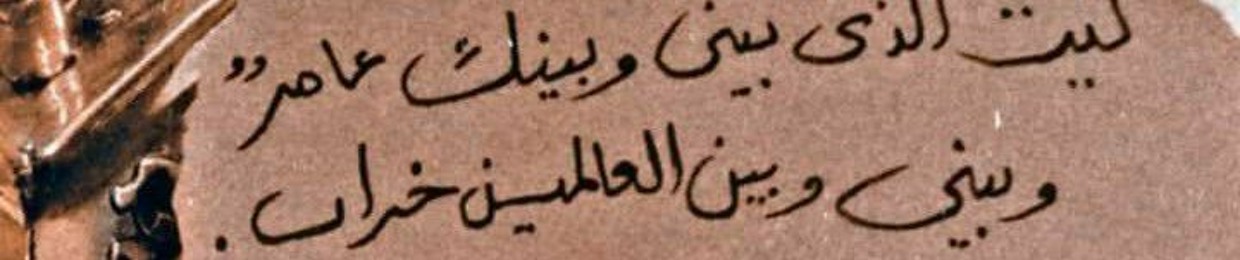 ليت الذى بينى وبينك عامرٌ
وبيني وبين العالمين خراب.